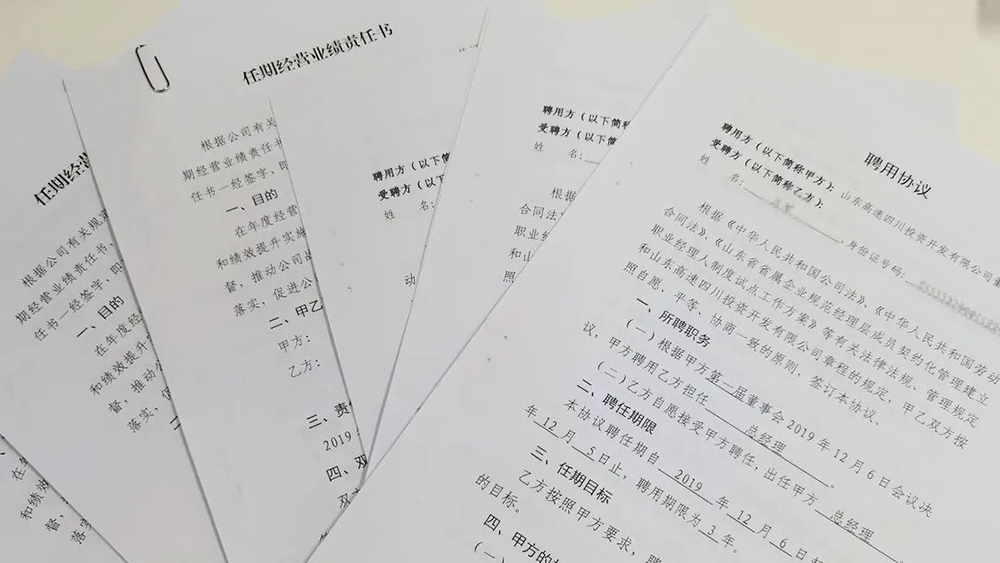 任期经营
根据公司有关规定
期经营业绩责任书
任书一经签字，即
一、目的
在年度经
和绩效提升
督，推动公
落实，促
在年
和绩效
督，
落实
任期经营业绩责任书
根据公司有关
期经营业绩责任书
任书一经签字，即
一、目的
在年度经营
和绩效提升实施
督，推动公司
落实，促进公
二、甲乙
甲方：
乙方：
三、责
2019
四、双
双方
聘用方（以下简
受聘方（以下
姓 名：
动
聘用方（以下简称
受聘方（以下简
姓 名：
根据
合同法
职业经
和山
照
聘用协议
聘用方（以下简称甲方）：山东高速四川投资开发有限公司
受聘方（以下简称乙方）：
姓 名：，身份证号码：
根据《中华人民共和国公司法》、《中华人民共和国劳动
合同法》、《山东省省属企业规范经理层成员契约化管理建立
职业经理人制度试点工作方案》等有关法律法规、管理规定
和山东高速四川投资开发有限公司章程的规定，甲乙双方按
照自愿、平等、协商一致的原则，签订本协议。
一、所聘职务
（一）根据甲方第一届董事会 2019 年 12 月 6 日会议决
议，甲方聘用乙方担任 总经理 。
（二）乙方自愿接受甲方聘任，出任甲方 总经理 。
二、聘任期限
本协议聘任期自 2019 年 12 月 6 日
年 12 月 5 日止，聘用期限为 3 年。
三、任期目标
乙方按照甲方要求，
的目标。
四、甲方的
（一）